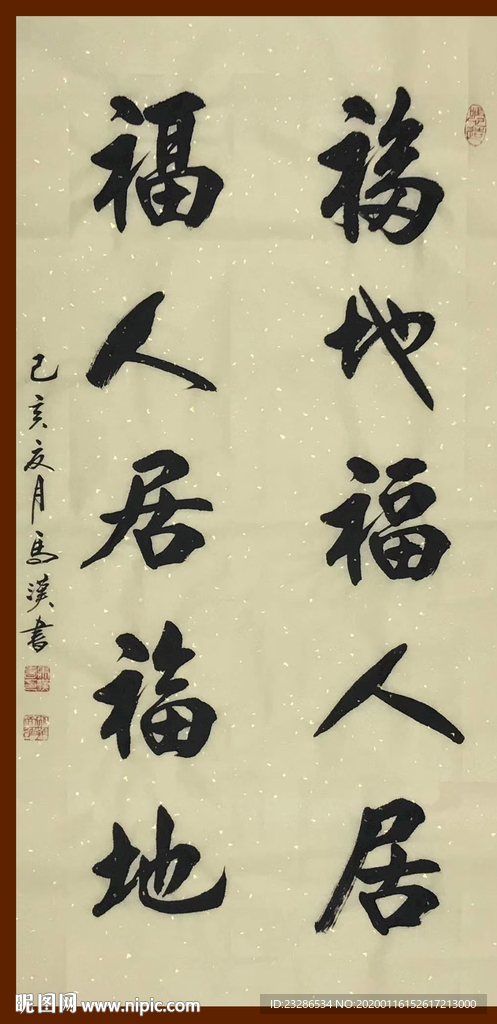 福地福人居
福人居福地
己亥夏月馬漢書
昵图网 www.nipic.com
ID:23286534 NO:20200116152617213000